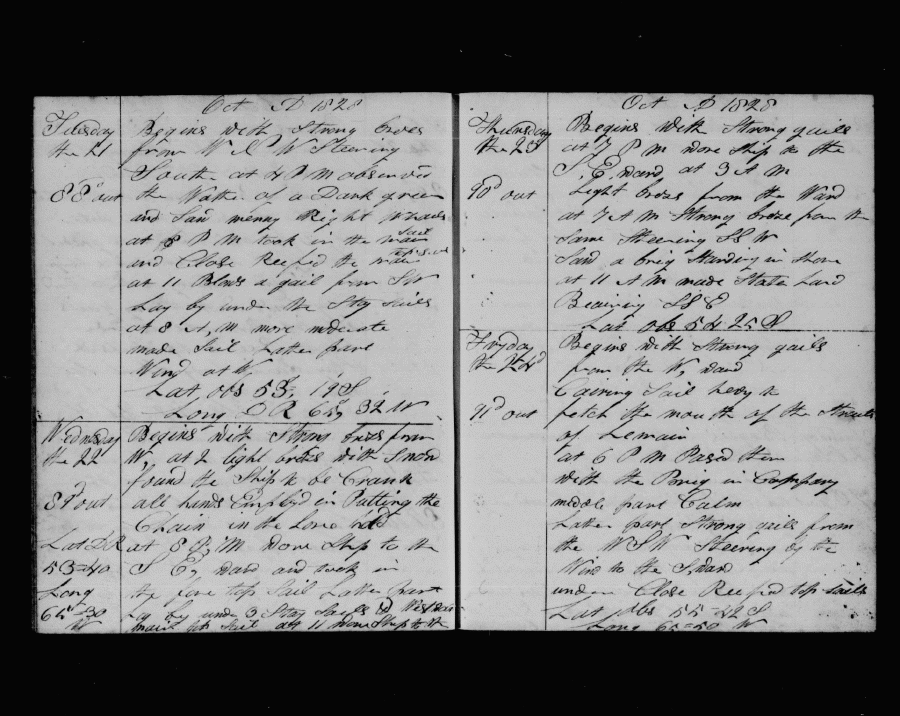 Oct AD 1828
Tuesday
the 21
88 out
Begins with Strong brees
from W N W Steering
South at 4 P M observed
the Water of a Dark green
and Saw menny Right Whales
at 8 P M took in the main Sail
and Close Reefed the main topsail
at 11 Blows a gail from SW
Lay by under the Stay sails
at 8 A, M more moderate
made Sail Latter part
Wind at W,
Lat, obs 53, 19 S
Long D R 65, 32 W
Wednesday
the 22
89 out
Lat D R
53=40
Long
65=30
W
Begins with Strong brees from
W, at 2 light brees with Snow
found the Ship to be Crank
all hands Employd in Putting the
Chain in the Lore hold
at 8 P, M wore Ship to the
S E, ward and took in
the fore top Sail Latter part
Lay by under 3 Stay Sails &
main top Sail at 11 wore Ship to the
Oct AD 1828
Thursday
the 23
90 out
Begins with Strong gails
at 7 P M wore Ship to the
S. E. ward, at 3 A M
Light brees from the Ward
at 7 A M Strong breze from the
Same Steering SS W
Saw a brig Standing in Shore
at 11 A M made Staten Land
Beairing SSE
Lat obs 54 25 S
Fryday
the 24
91 out
Begins with Strong gails
from the W, ward
Cairing Sail hevy to
fetch the mouth of the Straits
of Lemair
at 6 P M Pased them
with the Brig in Company
meddle part Calm
Latter part Strong gails from
the W S W Steering by the
Wind to the Sward
under Close Reefed top sails
Lat Obs 55=42 S
Long 65=50 W